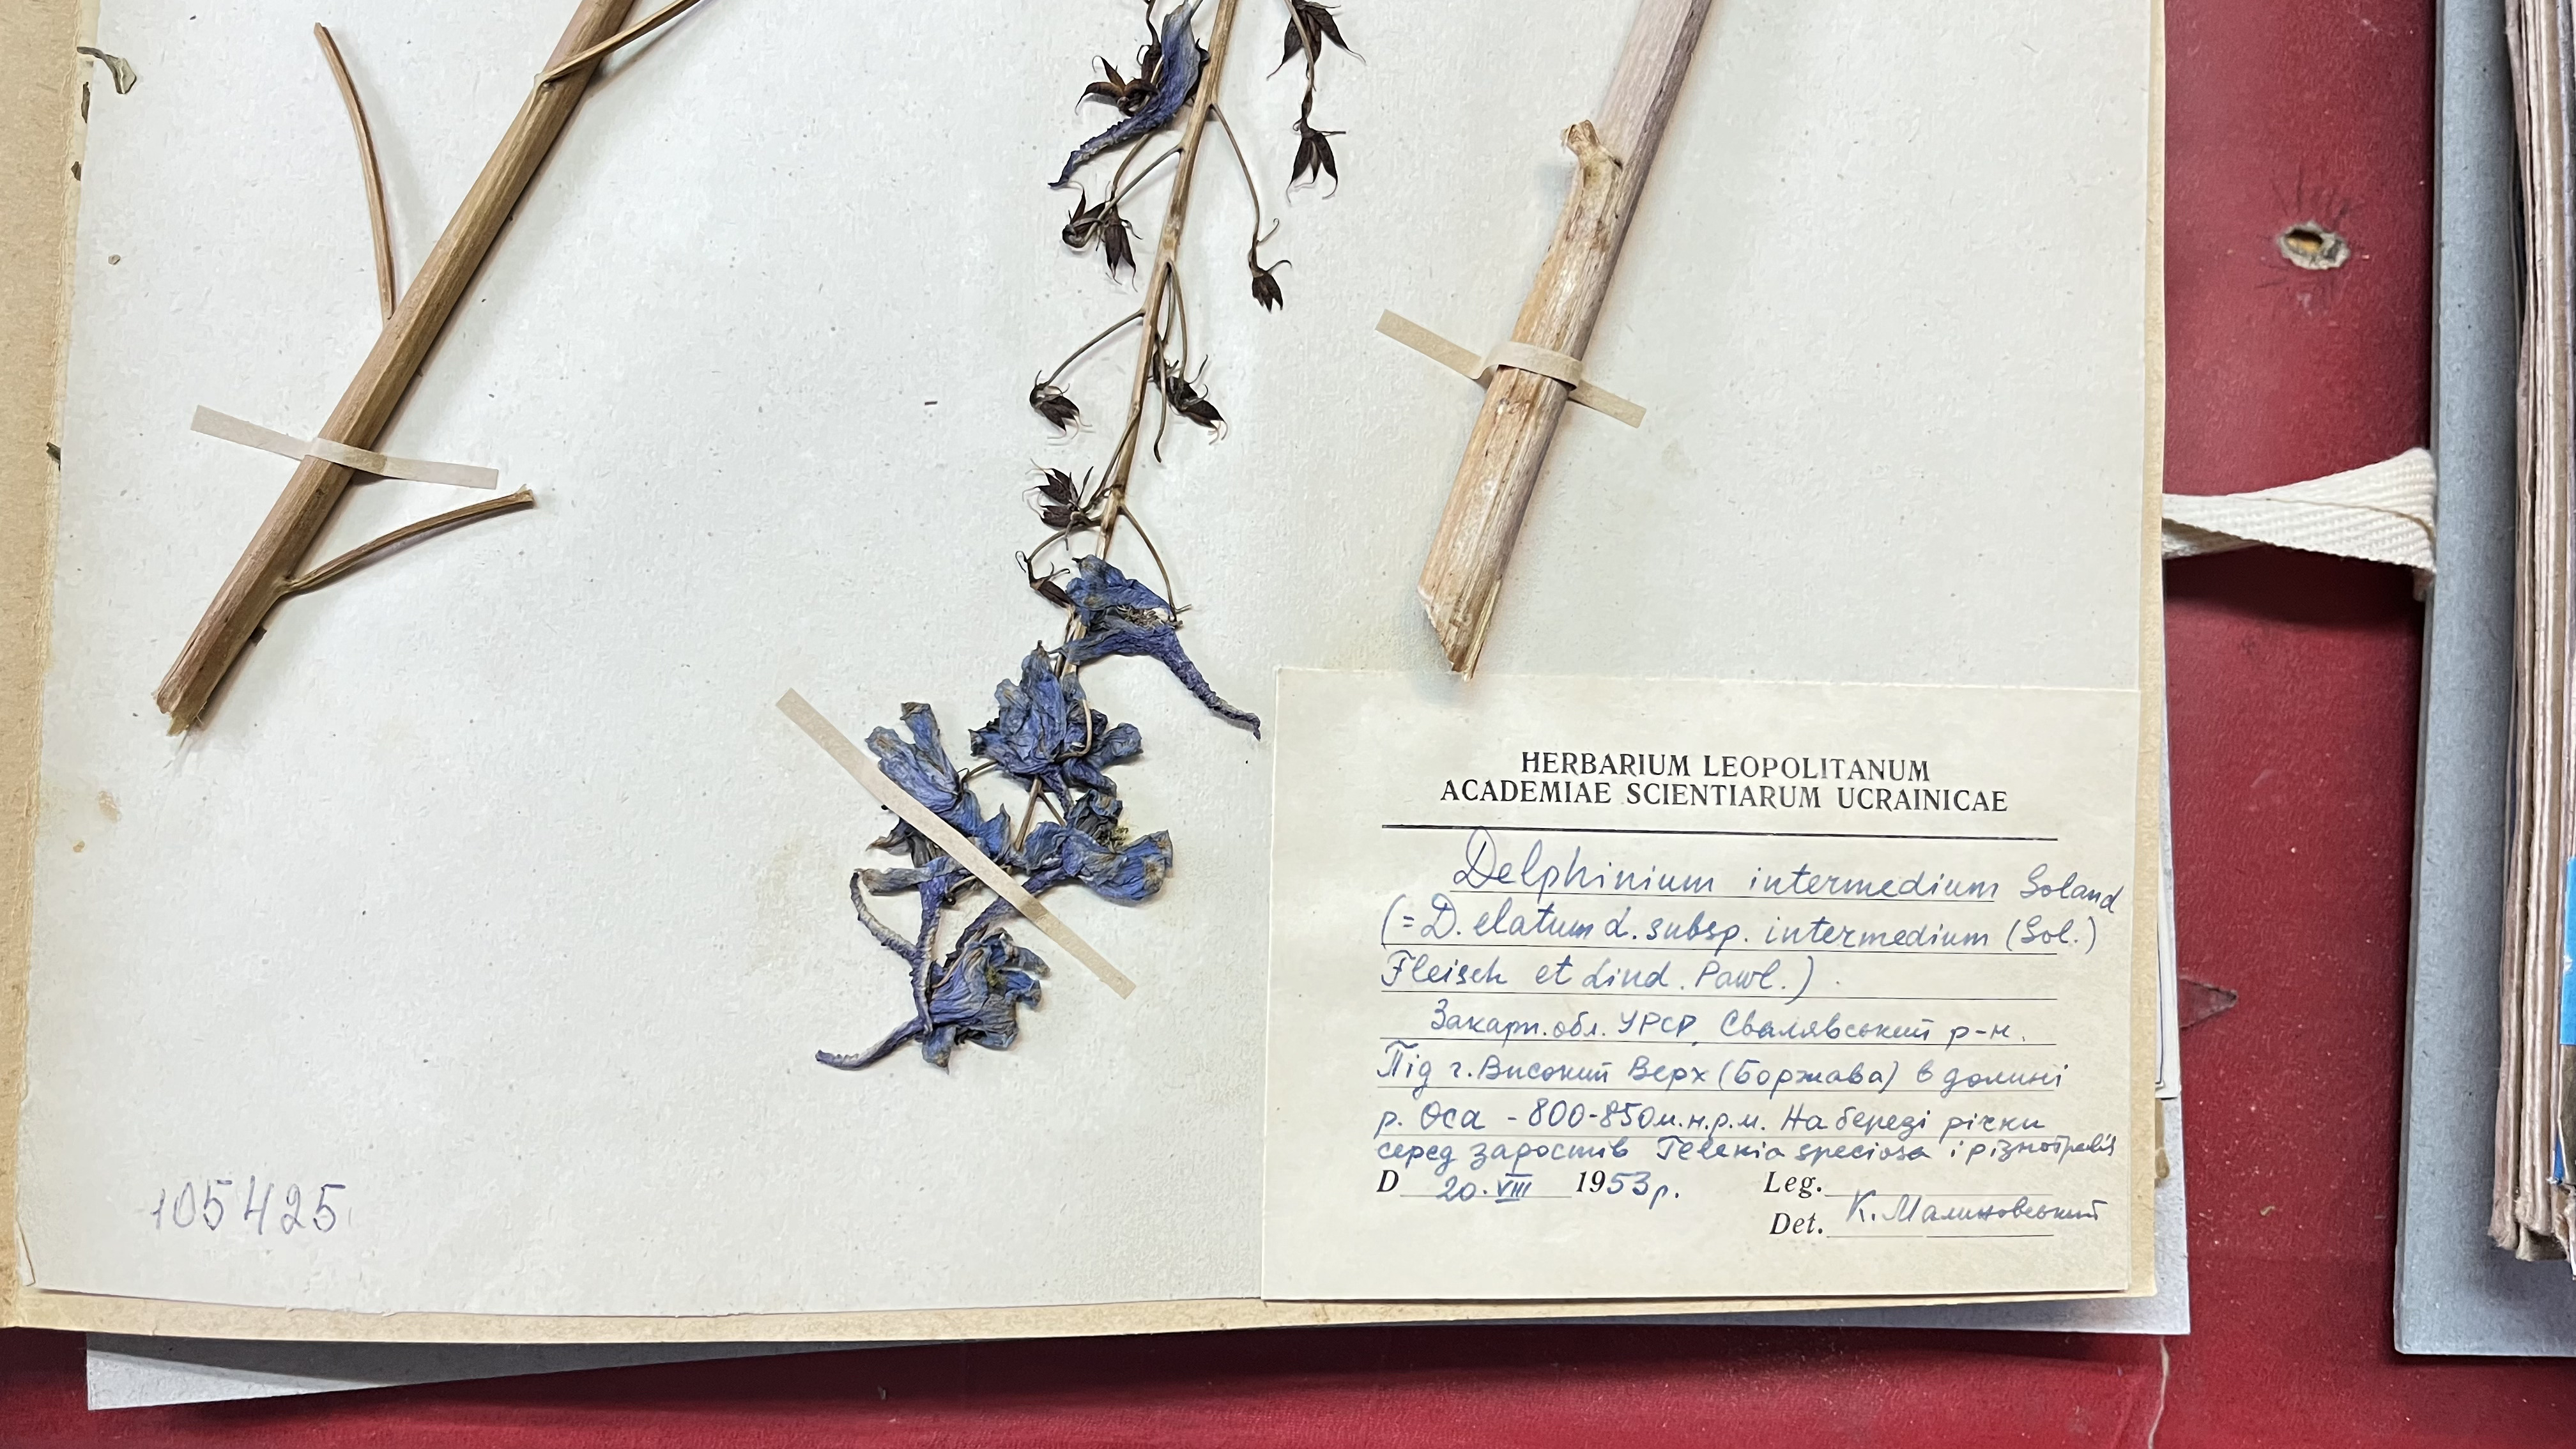 HERBARIUM LEOPOLITANUM
ACADEMIAE SCIENTIARUM UCRAINICAE
Delphinium intermedium Soland
(= D. elatum L. subsp. intermedium (Sol.)
Fleisch et Lind. Pawl.)
Закарп. обл. УРСР, Свалявський р-н.
Під г. Високий Верх (Боржава) в долині
р. Оса - 800-850 м.н.р.м. На березі річки
серед заростів Telekia speciosa і різнотравія
D 20. VIII 1953 р. Leg.
Det. К. Малиновський
105425